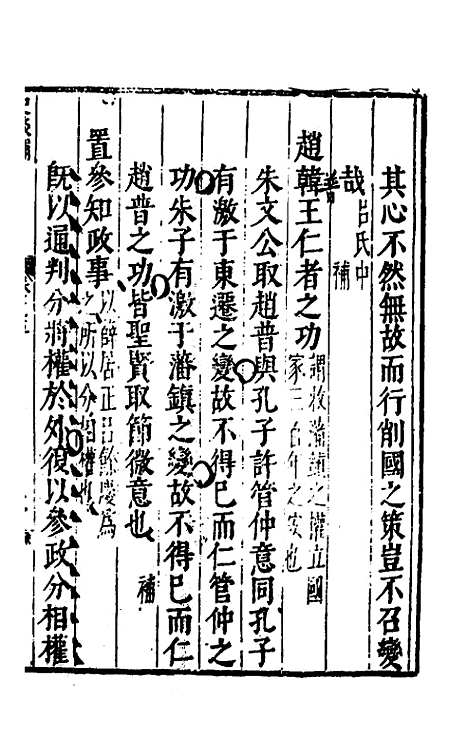 其心不然無故而行削國之策豈不召變
哉呂氏中補
趙韓王仁者之功謂收藩鎮之權立國家三百年之安也
朱文公取趙普與孔子許管仲意同孔子
有激于東遷之變故不得已而仁管仲之
功朱子有激于藩鎮之變故不得已而仁
趙普之功皆聖賢取節微意也補
置參知政事以薛居正呂餘慶為之所以分相權也
旣以通判分將權於外復以參政分相權